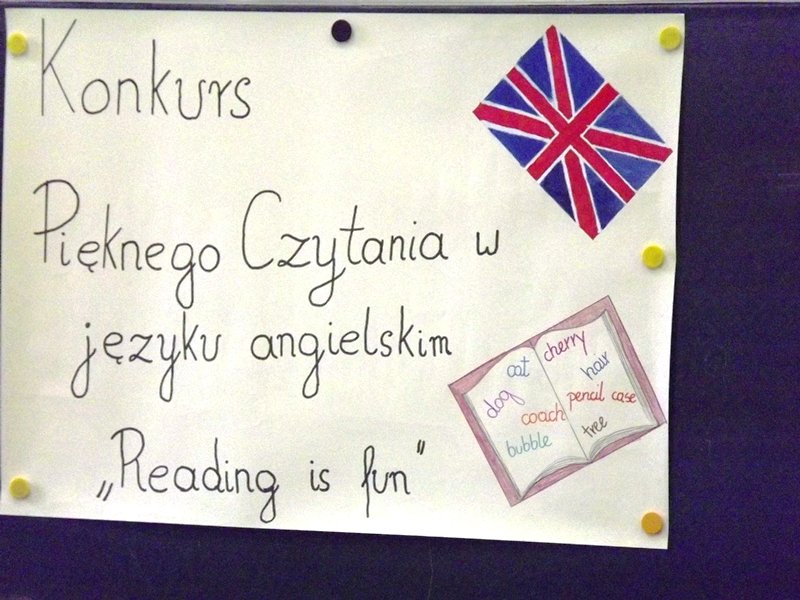 Konkurs
Pięknego Czytania w
języku angielskim
„Reading is fun”
cat
cherry
dog
hair
coach
pencil case
bubble
tree